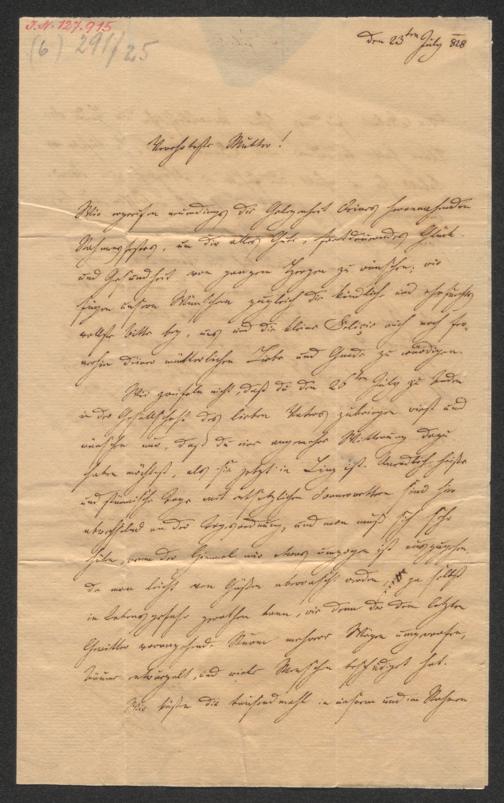 J.N. 127.915
(6) 291/25
Den 23ten July 828
Verehrteste Mutter!
Wir ergreifen die Gelegenheit Deines herannahenden
Nahmensfestes, um dir alles Gute, Glük
und Gesundheit von ganzen Herzen zu wünschen; wir
fügen unsern Wünschen zugleich die kindliche und
Bitte bey, uns und die kleine auch noch fer-
nerhin deiner mütterlichen Liebe und Gnade zu würdigen.
Wir zweifeln nicht, daß du den 26ten July zu Baden
in der Gesellschaft des lieben Vaters zubringen wirst und
wünschen nur, daß du eine angenehme Witterung dazu
haben möchtest, als sie jetzt in Linz ist. Unendlich heiße
und stürmische Tage mit entsetzlichen Donnerwettern sind hier
abwechselnd an der Tagesordnung, und man muß sich sehr
hüten, wenn der Himmel nur etwas umzogen ist auszugehen,
da man leicht von Güßen überrascht werden, ja selbst
in Lebensgefahr gerathen kann, wie denn der dem letzten
Gewitter vorangehende Sturm mehrere Wägen umgeworfen,
Bäume entwurzelt, und viele Menschen beschädiget hat.
Wir küßen dir tausendmahl in unserm und im Nahmen